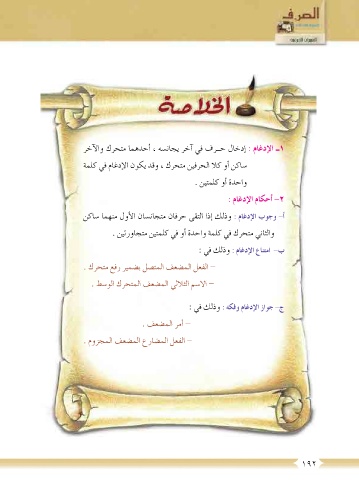 الصرف
الخلاصة
١- الإدغام : إدخال حرف في آخر يجانسه ، أحدهما متحرك والآخر
ساكن أو كلا الحرفين متحرك ، وقد يكون الإدغام في كلمة
واحدة أو كلمتين .
٢- أحكام الإدغام :
أ- وجوب الإدغام : وذلك إذا التقى حرفان متجانسان الأول منهما ساكن
والثاني متحرك في كلمة واحدة أو في كلمتين متجاورتين .
ب- امتناع الإدغام : وذلك في :
- الفعل المضعف المتصل بضمير رفع متحرك .
- الاسم الثلاثي المضعف المتحرك الوسط .
ج- جواز الإدغام وفكه : وذلك في :
- أمر المضعف .
- الفعل المضارع المضعف المجزوم .
١٩٢